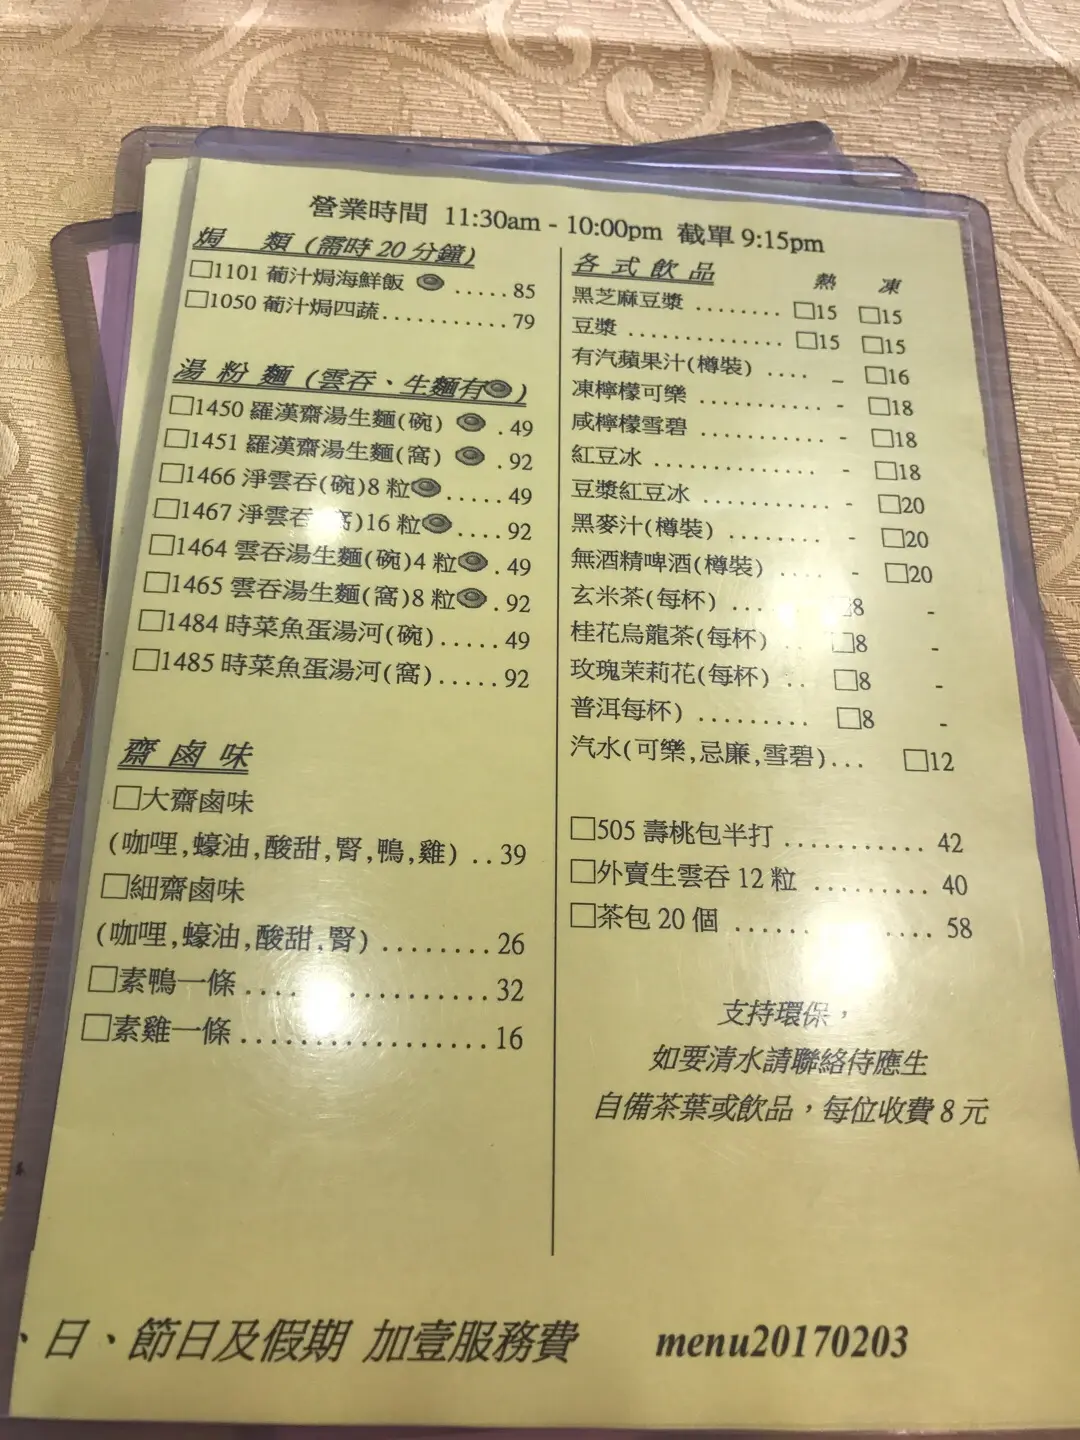 營業時間 11:30am - 10:00pm 截單 9:15pm
焗 類 (需時 20 分鐘)
□1101 葡汁焗海鮮飯 .....85
□1050 葡汁焗四蔬...........79
湯 粉 麵 (雲吞、生麵有)
□1450 羅漢齋湯生麵(碗) .49
□1451 羅漢齋湯生麵(窩) .92
□1466 淨雲吞(碗)8 粒.....49
□1467 淨雲吞 )16 粒....92
□1464 雲吞湯生麵(碗)4 粒.49
□1465 雲吞湯生麵(窩)8 粒.92
□1484 時菜魚蛋湯河(碗).....49
□1485 時菜魚蛋湯河(窩).....92
齋 鹵 味
□大齋鹵味
(咖哩,蠔油,酸甜,腎,鴨,雞) ..39
□細齋鹵味
(咖哩,蠔油,酸甜,腎) ........26
□素鴨一條 ..................32
□素雞一條 ..................16
各 式 飲 品 熱 凍
黑芝麻豆漿 ........ □15 □15
豆漿 .............. □15 □15
有汽蘋果汁(樽裝) .... - □16
凍檸檬可樂 ........... - □18
咸檸檬雪碧 ........... - □18
紅豆冰 ............... - □18
豆漿紅豆冰 ........... - □20
黑麥汁(樽裝) ......... - □20
無酒精啤酒(樽裝) .... - □20
玄米茶(每杯) ... □8 -
桂花烏龍茶(每杯) .. □8 -
玫瑰茉莉花(每杯) .. □8 -
普洱每杯) ......... □8 -
汽水(可樂,忌廉,雪碧)... □12
□505 壽桃包半打 ........... 42
□外賣生雲吞 12 粒 ......... 40
□茶包 20 個 ...... .... 58
支持環保，
如要清水請聯絡侍應生
自備茶葉或飲品，每位收費 8 元
、日、節日及假期 加壹服務費 menu20170203